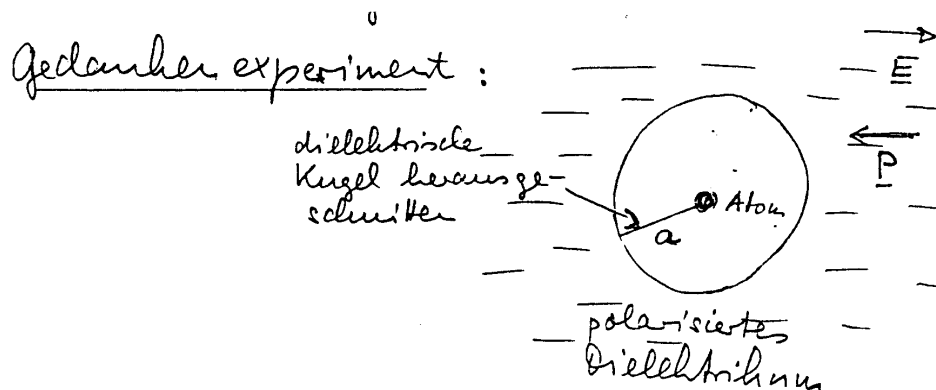 Gedankenexperiment :
E
P
dielektrische
Kugel herausge-
schnitten
Atom
a
polarisiertes
Dielektrikum